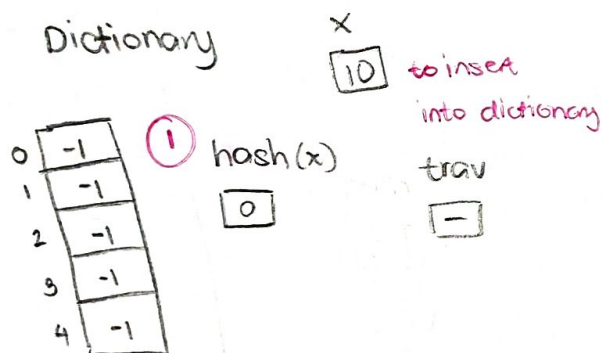 Dictionary
x
10 to insert
into dictionary
1
hash(x)
0
trav
-
0 -1
1 -1
2 -1
3 -1
4 -1